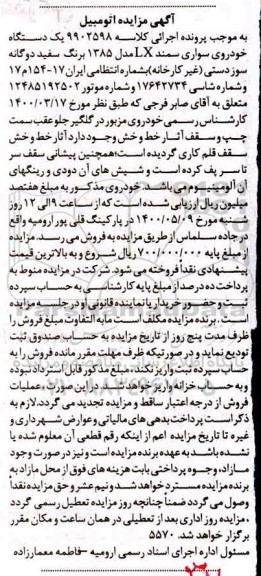 آگهی مزایده اتومبیل
به موجب پرونده اجرائی کلاسه ۹۹۰۲۵۹۸ یک دستگاه
خودروی سواری سمند LX مدل ۱۳۸۵ برنگ سفید دوگانه
سوز دستی (غیر کارخانه) بشماره انتظامی ایران ۱۷-۱۵۴م۱۷
و شماره شاسی ۱۷۶۴۲۷۳۴ و شماره موتور ۱۲۴۸۵۱۹۲۵۰۲
متعلق به آقای صابر فرجی که طبق نظر مورخ ۱۴۰۰/۰۳/۱۷
کارشناس رسمی خودروی مزبور در گلگیر جلو عقب سمت
چپ و سقف آثار خط و خش وجود دارد آثار خط و خش
سقف قلم کاری گردیده است؛ همچنین پیشانی سقف سر
تا سر پف کرده است و شیشه های آن دودی و رینگهای
آن آلومینیوم می باشد. خودروی مذکور به مبلغ هفتصد
میلیون ریال ارزیابی شده است که از ساعت ۹ الی ۱۲ روز
شنبه مورخ ۱۴۰۰/۰۵/۰۹ در پارکینگ قلی پور ارومیه واقع
در جاده سلماس از طریق مزایده به فروش می رسد. مزایده
از مبلغ پایه ۷۰۰/۰۰۰/۰۰۰ ریال شروع و به بالاترین قیمت
پیشنهادی نقداً فروخته می شود. شرکت در مزایده منوط به
پرداخت ده درصد از مبلغ پایه کارشناسی به حساب سپرده
ثبت و حضور خریدار یا نماینده قانونی او در جلسه مزایده
است. برنده مزایده مکلف است مابه التفاوت مبلغ فروش را
ظرف مدت پنج روز از تاریخ مزایده به حساب صندوق ثبت
تودیع نماید و در صورتیکه ظرف مهلت مقرر مانده فروش را به
حساب سپرده ثبت واریز نکند، مبلغ مذکور قابل استرداد نبوده
و به حساب خزانه واریز خواهد شد. در این صورت، عملیات
فروش از درجه اعتبار ساقط و مزایده تجدید می گردد. لازم به
ذکر است پرداخت بدهی های مالیاتی و عوارض شهرداری و
غیره تا تاریخ مزایده اعم از اینکه رقم قطعی آن معلوم شده یا
نشده باشد به عهده برنده مزایده است و نیز در صورت وجود
مازاد، وجوه پرداختی بابت هزینه های فوق از محل مازاد به
برنده مزایده مسترد خواهد شد و نیم عشر و حق مزایده نقداً
وصول می گردد ضمناً چنانچه روز مزایده تعطیل رسمی گردد
، مزایده روز اداری بعد از تعطیلی در همان ساعت و مکان مقرر
برگزار خواهد شد. ۵۵۷۰
مسئول اداره اجرای اسناد رسمی ارومیه - فاطمه معمارزاده